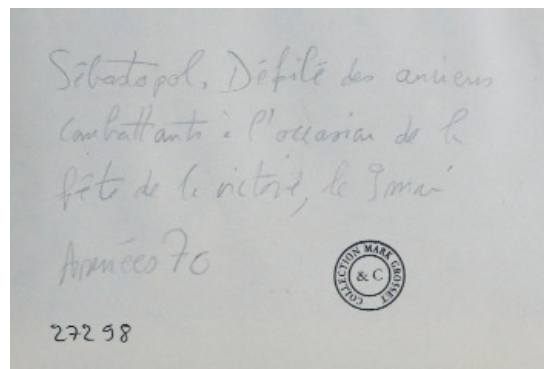 Sébastopol. Défilé des anciens
combattants à l'occasion de la
fête de la victoire, le 9 mai
Années 70
COLLECTION MARK GROSSET
& C
27298